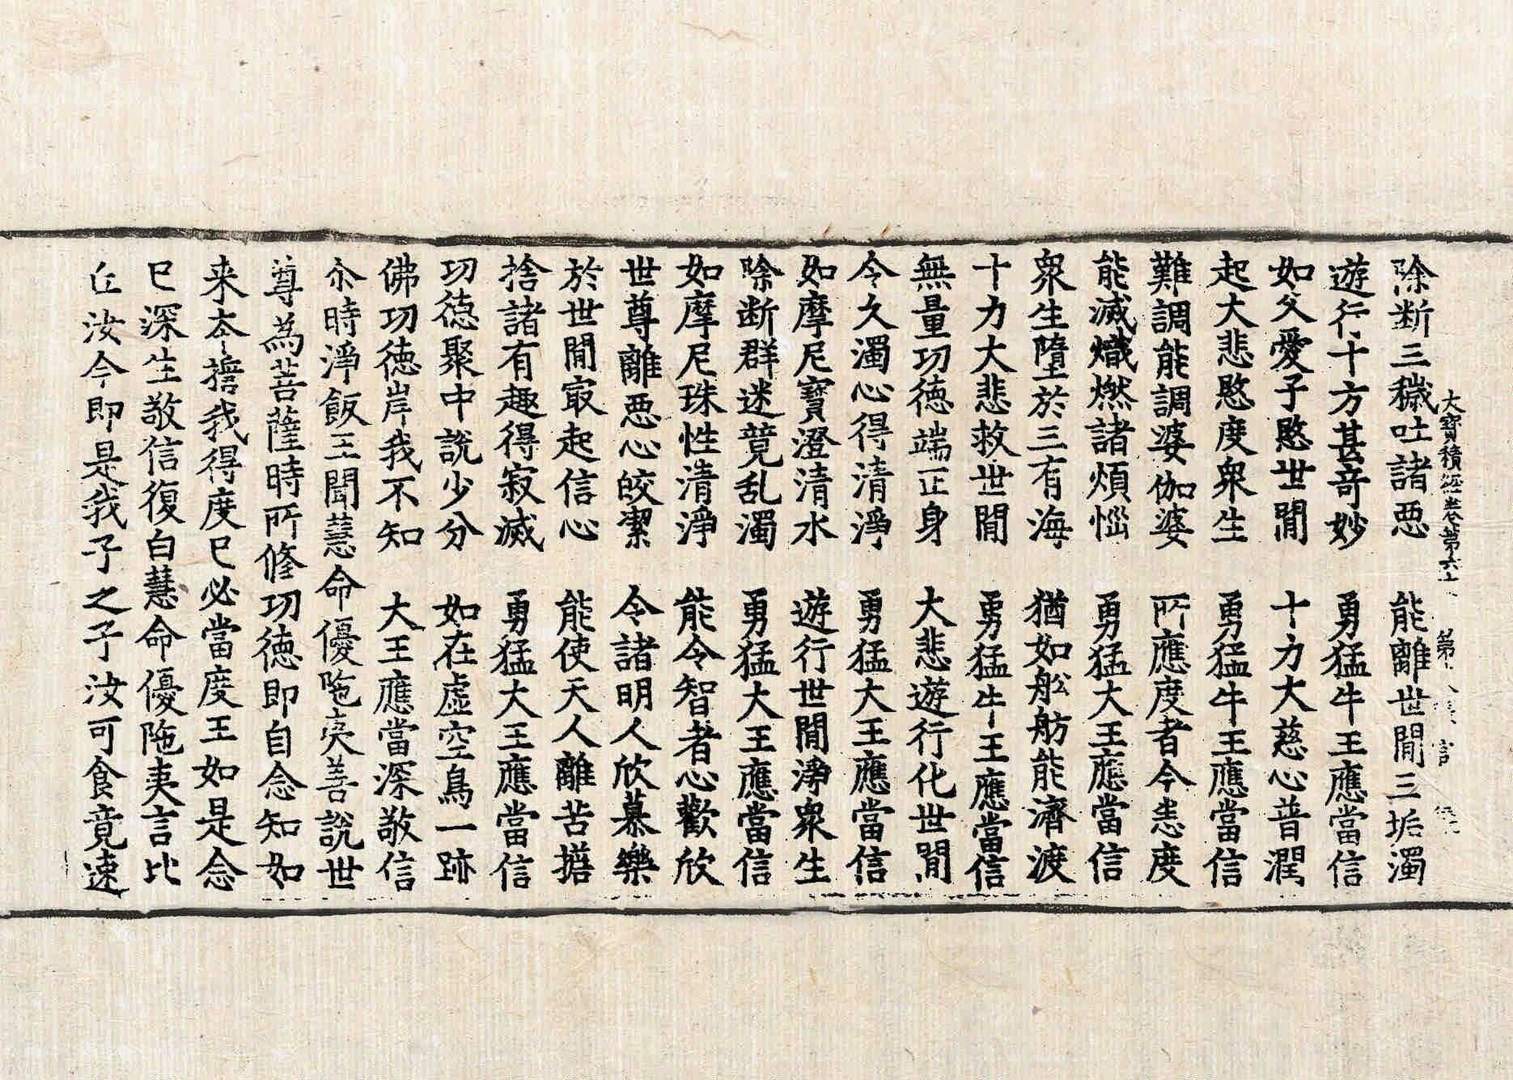 大寶積經卷第六十 第
除断三穢吐諸惡 能離世閒三垢濁
遊行十方甚竒妙 勇猛牛王應當信
如父愛子愍世閒 十力大慈心普潤
起大悲愍度衆生 勇猛牛王應當信
難調能調婆伽婆 所應度者今悉度
能滅熾燃諸煩惱 勇猛大王應當信
衆生墮於三有海 猶如舩舫能濟渡
十力大悲救世閒 勇猛牛王應當信
無量功德端正身 大悲遊行化世閒
令久濁心得清淨 勇猛大王應當信
如摩尼寶澄清水 遊行世閒淨衆生
除断群迷竟乱濁 勇猛大王應當信
如摩尼珠性清淨 能令智者心歡欣
世尊離惡心皎潔 令諸明人欣慕樂
於世閒冣起信心 能使天人離苦擔
捨諸有趣得寂滅 勇猛大王應當信
功德聚中說少分 如在虛空鳥一跡
佛功德岸我不知 大王應當深敬信
尒時淨飯王聞慧命優陁夷善說世
尊為菩薩時所修功德即自念知如
来夲擔我得度已必當度王如是念
已深生敬信復白慧命優陁夷言比
丘汝今即是我子之子汝可食竟速